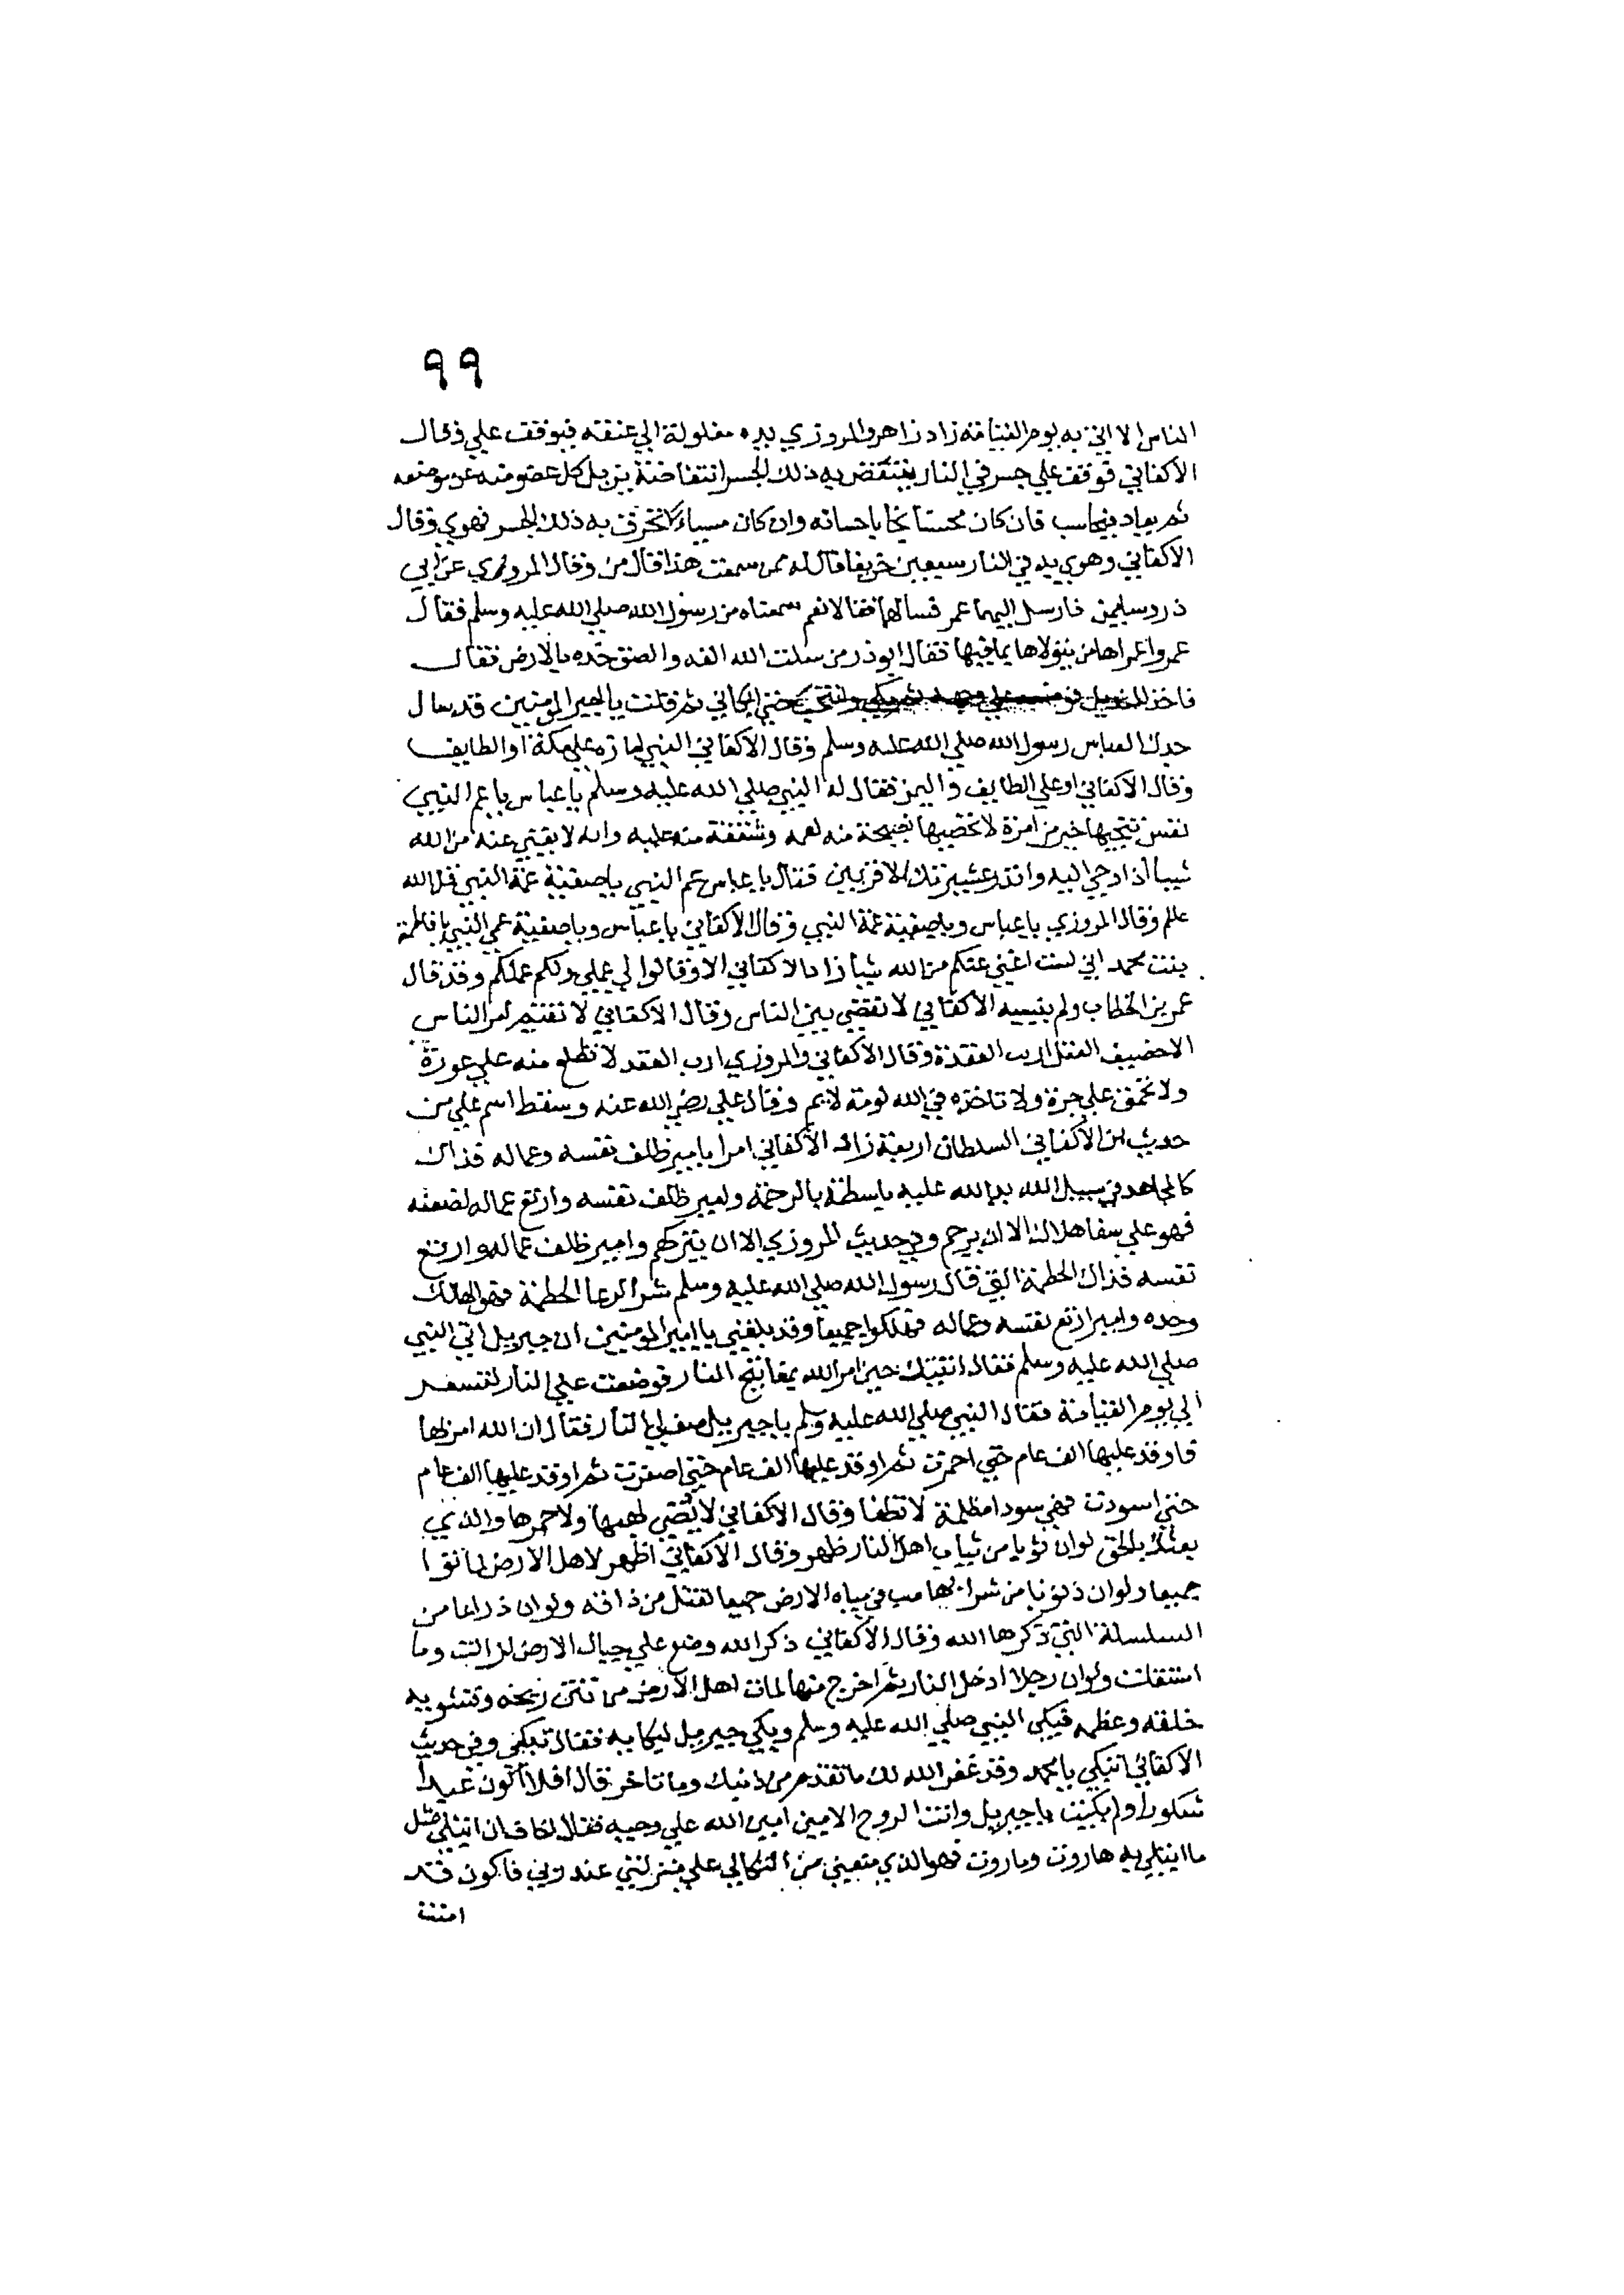 ٩٩
الناس الا اتي به يوم القيامة زاد زاهر والمروزي يده مغلولة الي عنقه فيوقف علي وقال
الاكفاني فوقف علي جسر في النار ينتفض به ذلك الجسر انتفاضة يزيل كل عضو منه عن موضعه
ثم يعاد فيحاسب فان كان محسنا نجا باحسانه وان كان مسيا انخرق به ذلك الجسر فهوي وقال
الاكفاني وهوي به في النار سبعين خريفا فقال له ممن سمعت هذا قال من وقال المروزي عن ابي
ذر وسليمن فارسل اليهما عمر فسالهما فقالا نعم سمعناه من رسول الله صلي الله عليه وسلم فقال
عمر واعمراه من يتولاها بما فيها فقال ابو ذر من سلت الله انفه والصق خده بالارض فقال
فاخذ المنديل فوضعه علي وجهه ثم بكي وانتحب حتي ابكاني ثم قلت يا امير المومنين قد سال
جدك العباس رسول الله صلي الله عليه وسلم وقال الاكفاني النبي امارة علي مكة او الطايف
وقال الاكفاني او علي الطايف واليمن فقال له النبي صلي الله عليه وسلم يا عباس يا عم النبي
نفس تنجيها خير من امرة لا تحصيها نصيحة منه لعمه وشفقة منه عليه وانه لا يغني عنه من الله
شيا اذ اوحي اليه وانذر عشيرتك الاقربين فقال يا عباس عم النبي يا صفية عمة النبي
وقال المروزي يا عباس ويا صفية عمة النبي وقال الاكفاني يا عباس ويا صفية عمي النبي يا فاطمة
بنت محمد اني لست اغني عنكم من الله شيا زاد الاكفاني الا وقالوا لي عملي ولكم عملكم وقد قال
عمر بن الخطاب ولم ينسبه الاكفاني لا يقضي بين الناس وقال الاكفاني لا يقيم امر الناس
الا حصيف العقل اريب العقدة وقال الاكفاني والمروزي ارب العقد لا يطلع منه علي عورة
ولا يحنق علي جرة ولا تاخذه في الله لومة لايم وقال علي رضي الله عنه وسقط اسم علي من
حديث ابن الاكفاني السلطان اربعة زاد الاكفاني امرا يا امير ظلف نفسه وعماله فذاك
كالمجاهد في سبيل الله يد الله عليه باسطة بالرحمة وامير ظلف نفسه وارتع عماله لضعفه
فهو علي شفا هلاك الا ان يرحم وفي حديث المروزي الا ان يتركهم وامير ظلف عماله وارتع
نفسه فذاك الحطمة التي قال رسول الله صلي الله عليه وسلم شر الرعا الحطمة فهو الهالك
وحده وامير ارتع نفسه وعماله فهلكوا جميعا وقد بلغني يا امير المومنين ان جبريل اتي النبي
صلي الله عليه وسلم فقال اتيتك حين امر الله بمفاتيح النار فوضعت علي النار لتسعر
الي يوم القيامة فقال النبي صلي الله عليه وسلم يا جبريل صف لي النار فقال ان الله امر بها
فاوقد عليها الف عام حتي احمرت ثم اوقد عليها الف عام حتي اصفرت ثم اوقد عليها الف عام
حتي اسودت فهي سودا مظلمة لا تطفا وقال الاكفاني لا يضي لهبها ولا جمرها والذي
بعثك بالحق لو ان ثوبا من ثياب اهل النار ظهر وقال الاكفاني اظهر لاهل الارض لماتوا
جميعا ولو ان ذنوبا من شرابها صب في مياه الارض جميعا لقتل من ذاقه ولو ان ذراعا من
السلسلة التي ذكرها الله وقال الاكفاني ذكر الله وضع علي جبال الارض لزالت وما
استقلت ولو ان رجلا ادخل النار ثم اخرج منها لمات اهل الارض من نتن ريحه وتشويه
خلقه وعظمه فبكي النبي صلي الله عليه وسلم وبكي جبريل لبكايه فقال تبكي وفي حديث
الاكفاني اتبكي يا محمد وقد غفر الله لك ما تقدم من ذنبك وما تاخر قال افلا اكون عبدا
شكورا ولم بكيت يا جبريل وانت الروح الامين امين الله علي وحيه فقال اخاف ان ابتلي مثل
ما ابتلي به هاروت وماروت فهو الذي منعني من اتكالي علي منزلتي عند ربي فاكون قد
امنت